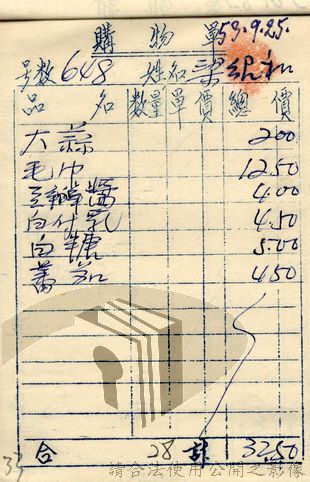 購物單 53.9.25.
号数 648 姓名 梁
品名 數量 單價 總價
大蒜 200
毛巾 1250
豆瓣醬 4.00
白付乳 4.50
白糖 5.00
蕃茄 450
合 28 計 3250
33
請合法使用公開之影像